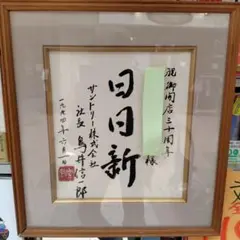 祝御開店三十周年
様
日日新
サントリー株式会社
社長 鳥井信一郎
一九九四年六月一日